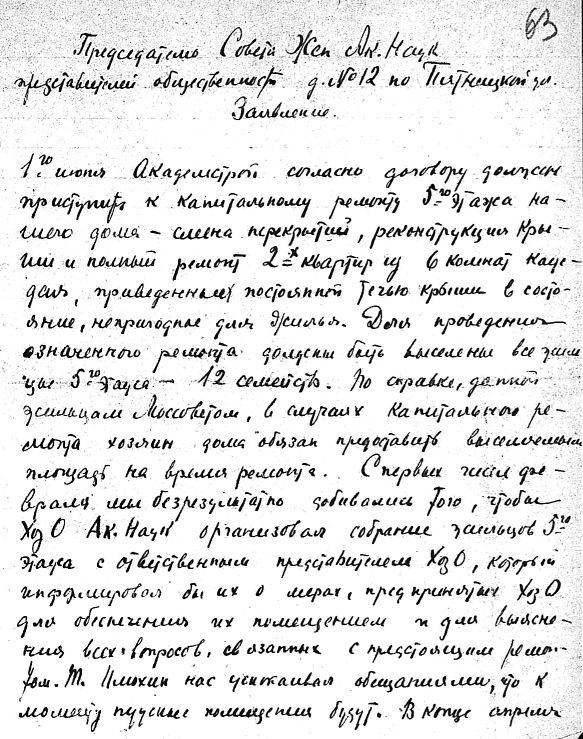 63
Председателю Совета Жен Ак. Наук
представителей общественности д. №12 по Пятницкой ул.
Заявление.
1го июня Академстрой согласно договору должен
приступить к капитальному ремонту 5го этажа на-
шего дома – смена перекрытий, реконструкция кры-
ши и полный ремонт 2х квартир из 6 комнат каж-
дая, приведенных постоянной течью крыши в состо-
яние, непригодное для жилья. Для проведения
означенного ремонта должны быть выселены все жиль-
цы 5го этажа – 12 семейств. По справке, данной
жильцам Моссоветом, в случаях капитального ре-
монта хозяин дома обязан предоставить выселяемым
площадь на время ремонта. С первых чисел фе-
враля мы безрезультатно добивались того, чтобы
ХозО Ак. Наук организовал собрание жильцов 5го
этажа с ответственным представителем ХозО, который
информировал бы их о мерах, предпринятых ХозО
для обеспечения их помещением и для выясне-
ния всех вопросов, связанных с предстоящим ремон-
том. Т. нас успокаивал обещаниями, что к
моменту помещения будут. В конце апреля